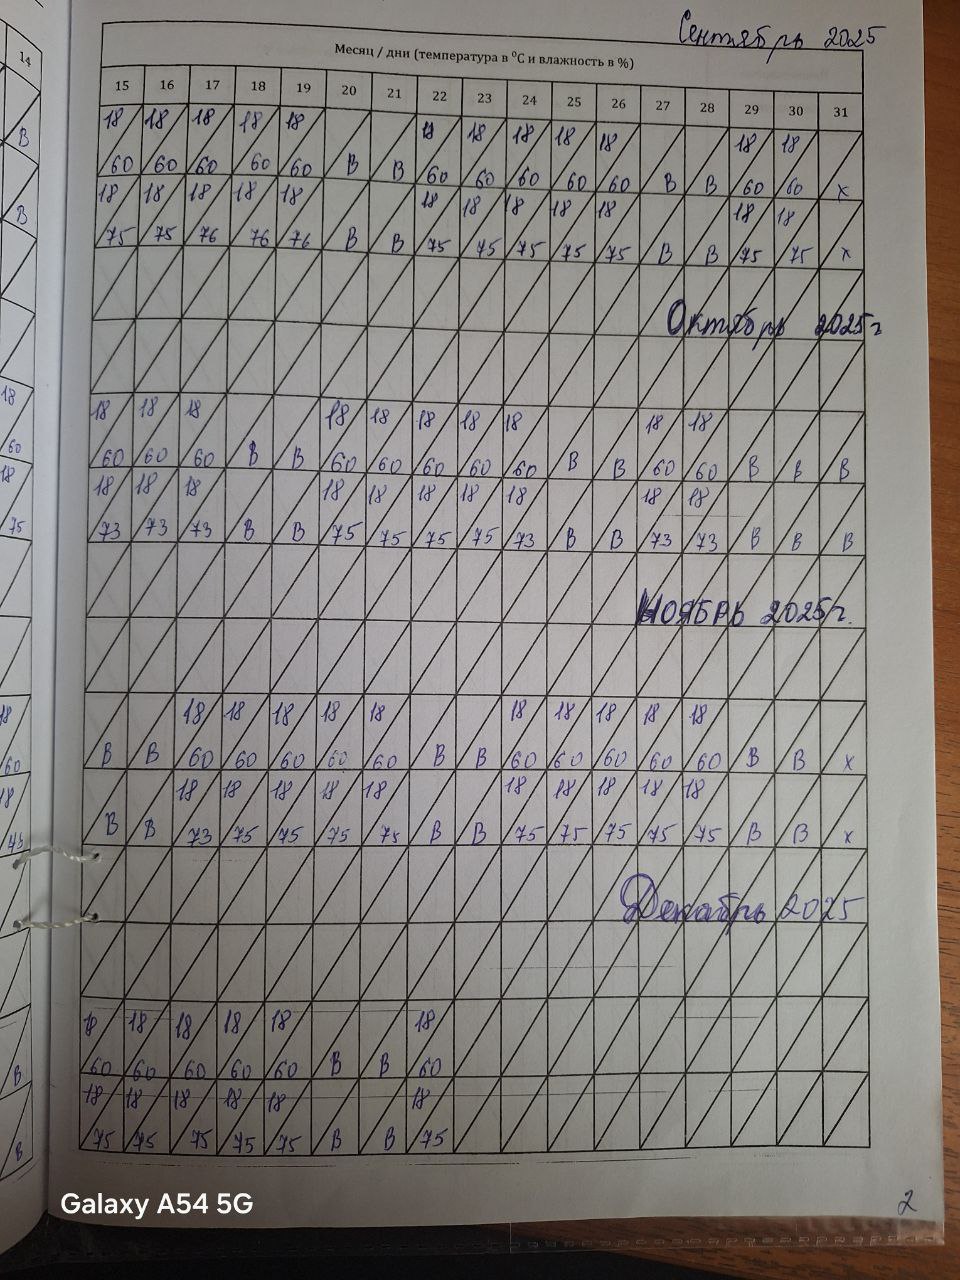 Сентябрь 2025
Месяц / дни (температура в °С и влажность в %)
14
15 16 17 18 19 20 21 22 23 24 25 26 27 28 29 30 31
18 18 18 18 18 18 18 18 18 18 18 18
В
60 60 60 60 60 В В 60 60 60 60 60 В В 60 60 х
18 18 18 18 18 18 18 18 18 18 18 18
В
75 75 76 76 76 В В 75 75 75 75 75 В В 75 75 х
Октябрь 2025г
18
18 18 18 18 18 18 18 18 18 18
60
60 60 60 В В 60 60 60 60 60 В В 60 60 В В В
18
18 18 18 18 18 18 18 18 18 18
75
73 73 73 В В 75 75 75 75 73 В В 73 73 В В В
НОЯБРЬ 2025г.
18
18 18 18 18 18 18 18 18 18 18
60
В В 60 60 60 60 60 В В 60 60 60 60 60 В В х
18
18 18 18 18 18 18 18 18 18 18
В В 73 75 75 75 75 В В 75 75 75 75 75 В В х
Декабрь 2025
18 18 18 18 18 18
В
60 60 60 60 60 В В 60
18 18 18 18 18 18
В
75 75 75 75 75 В В 75
Galaxy A54 5G
2